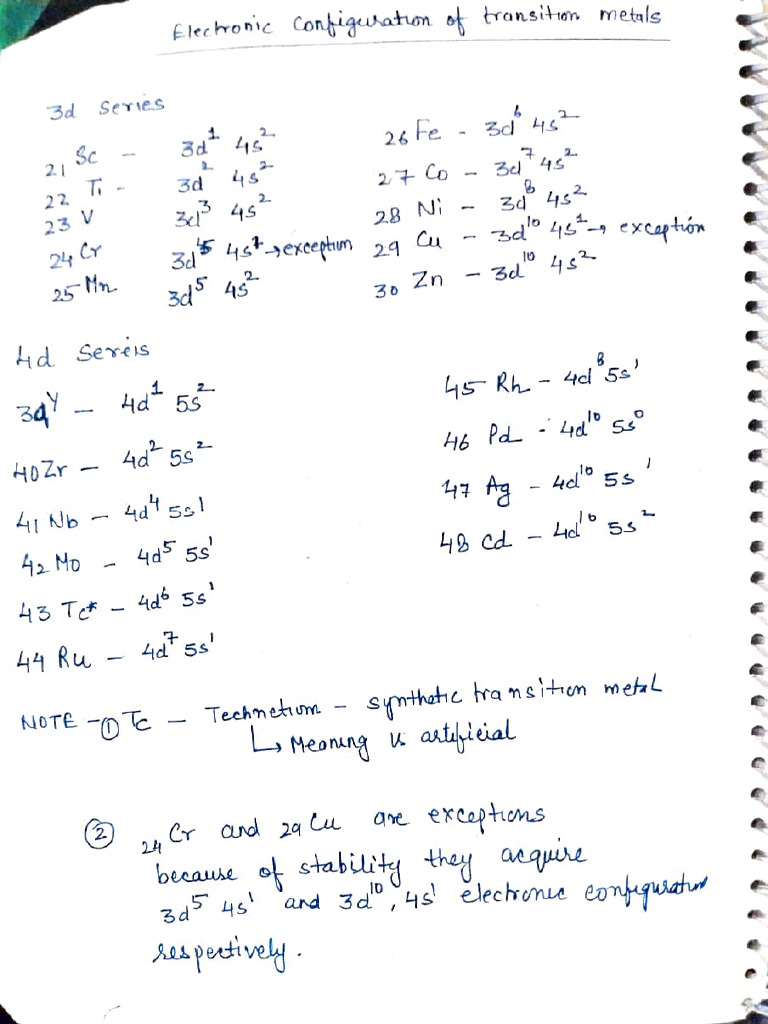 Electronic Configuration of transition metals
3d Series
21 Sc - 3d¹ 4s²
22 Ti - 3d² 4s²
23 V 3d³ 4s²
24 Cr 3d⁵ 4s¹ → exception
25 Mn 3d⁵ 4s²
26 Fe - 3d⁶ 4s²
27 Co - 3d⁷ 4s²
28 Ni - 3d⁸ 4s²
29 Cu - 3d¹⁰ 4s¹ → exception
30 Zn - 3d¹⁰ 4s²
4d Sereis
39 Y - 4d¹ 5s²
40 Zr - 4d² 5s²
41 Nb - 4d⁴ 5s¹
42 Mo - 4d⁵ 5s¹
43 Tc* - 4d⁶ 5s¹
44 Ru - 4d⁷ 5s¹
45 Rh - 4d⁸ 5s¹
46 Pd - 4d¹⁰ 5s⁰
47 Ag - 4d¹⁰ 5s¹
48 Cd - 4d¹⁰ 5s²
NOTE - ① Tc - Technetium - synthetic transition metal
↳ Meaning is artificial
② 24 Cr and 29 Cu are exceptions
because of stability they acquire
3d⁵ 4s¹ and 3d¹⁰, 4s¹ electronic configuration
respectively.